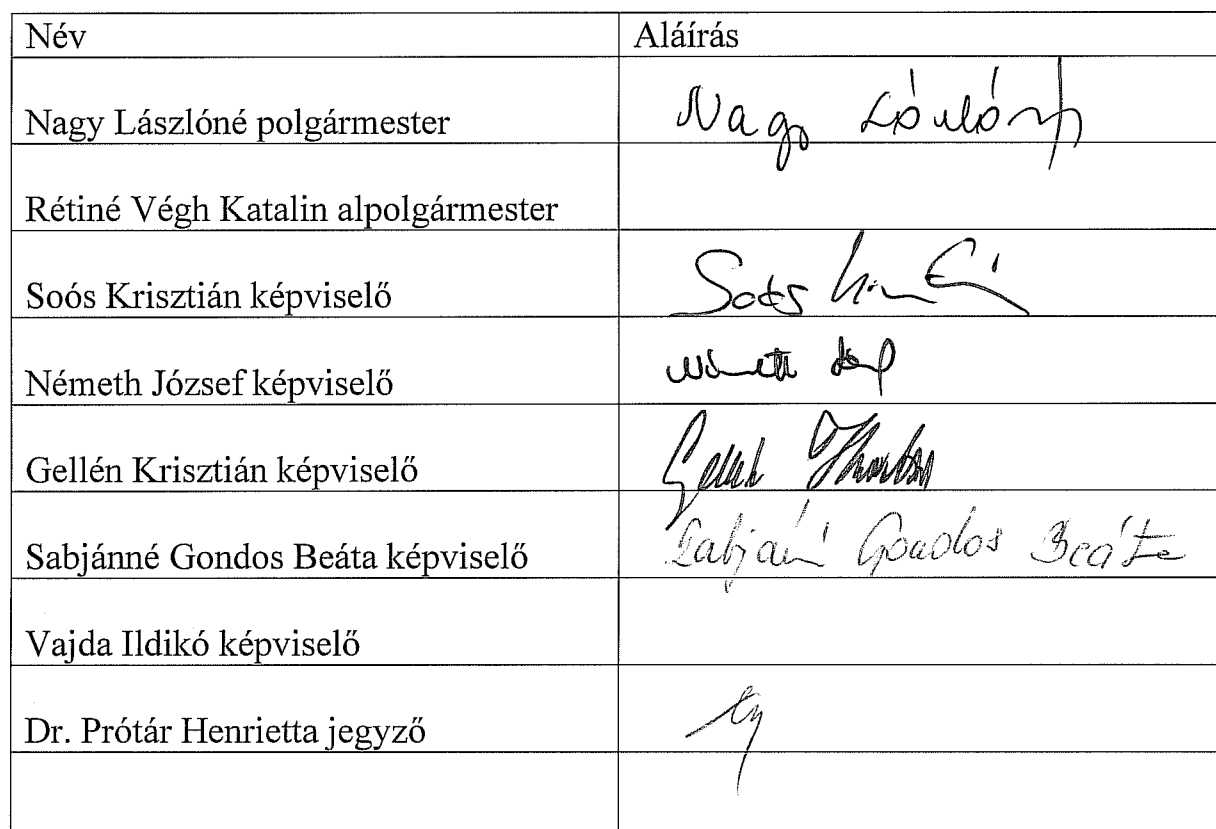 Név Aláírás
Nagy Lászlóné polgármester Nagy Lászlóné
Rétiné Végh Katalin alpolgármester
Soós Krisztián képviselő Soós
Németh József képviselő Németh
Gellén Krisztián képviselő Gellén
Sabjánné Gondos Beáta képviselő Sabjánné Gondos Beáta
Vajda Ildikó képviselő
Dr. Prótár Henrietta jegyző